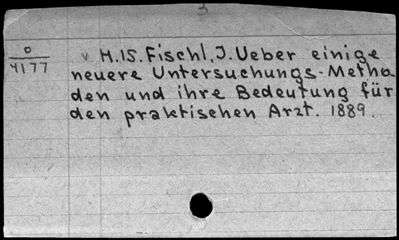 3
0
4177
v H.15. Fischl, J. Ueber einige
neuere Untersuchungs-Metho
den und ihre Bedeutung für
den praktischen Arzt. 1889.